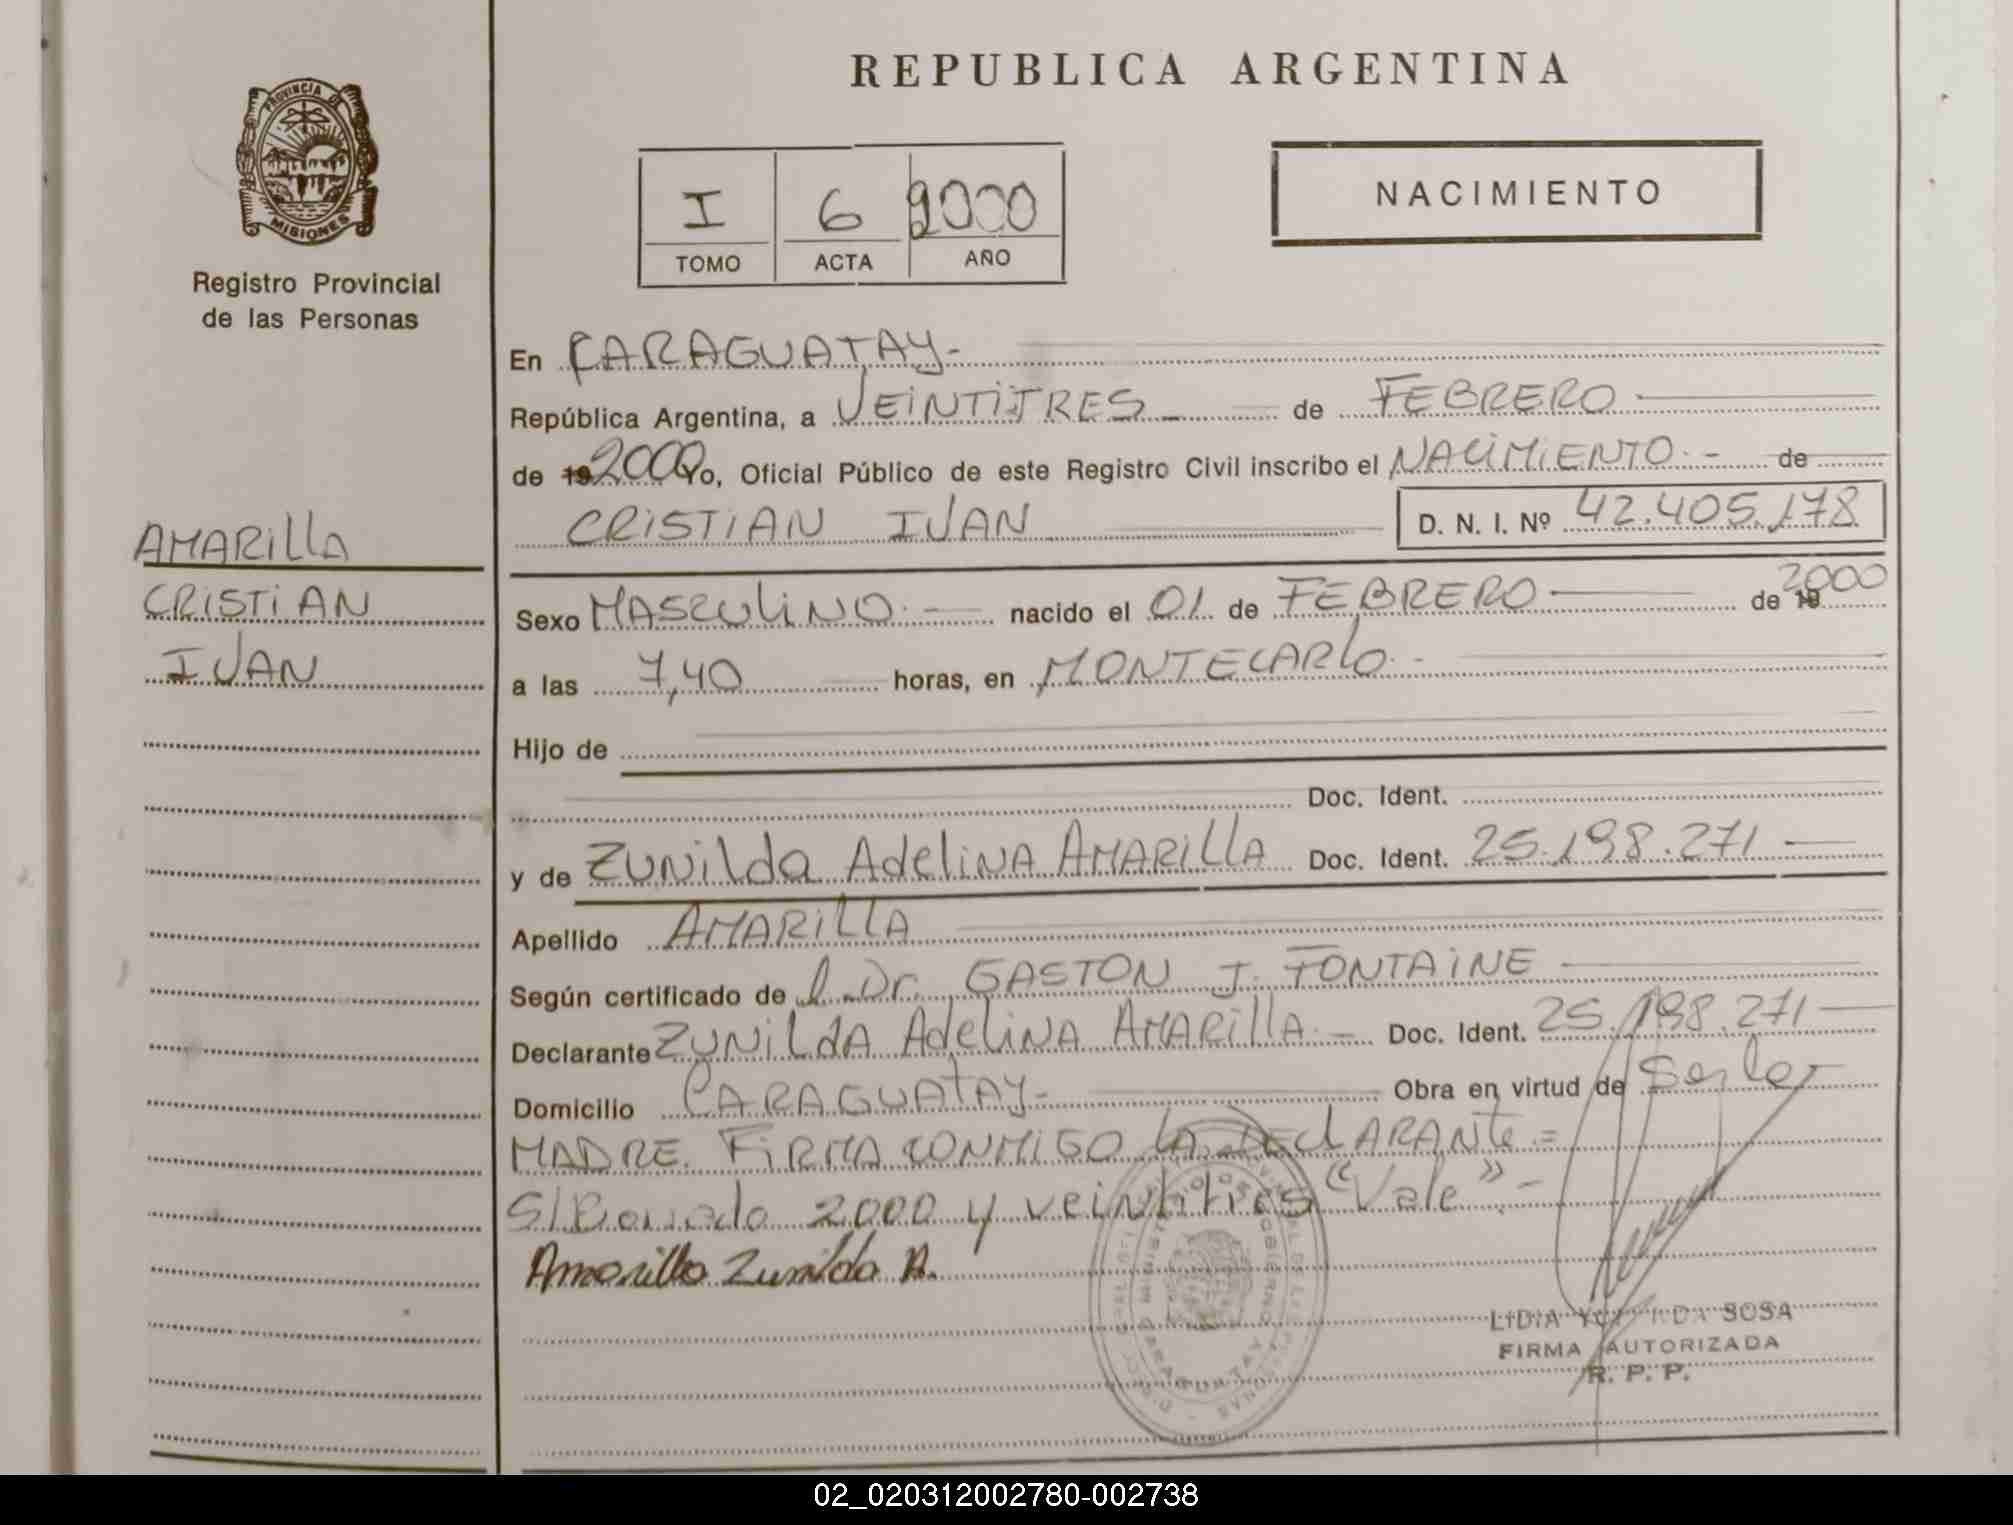 REPUBLICA ARGENTINA
PROVINCIA DE
MISIONES
Registro Provincial
de las Personas
I 6 2000
TOMO ACTA AÑO
NACIMIENTO
AMARILLA
CRISTIAN
IVAN
En CARAGUATAY-
República Argentina, a VEINTITRES - de FEBRERO
de 19 2000 Yo, Oficial Público de este Registro Civil inscribo el NACIMIENTO.- de
CRISTIAN IVAN D. N. I. Nº 42.405.178
Sexo MASCULINO.- nacido el 01 de FEBRERO de 19 2000
a las 7,40 horas, en MONTECARLO.-
Hijo de
Doc. Ident.
y de ZUNILDA AdELINA AMARILLA Doc. Ident. 25.198.271
Apellido AMARILLA
Según certificado de l Dr. GASTON J. FONTAINE
Declarante ZUNILDA AdELINA AMARILLA.- Doc. Ident. 25.198.271
Domicilio CARAGUATAY- Obra en virtud de Ser la
MADRE. FIRMA CONMIGO LA DECLARANTE.=
S/Borrado 2000 y veintitres "Vale"-
Amarilla Zunilda A.
LIDIA SOSA
FIRMA AUTORIZADA
R. P. P.
02_020312002780-002738